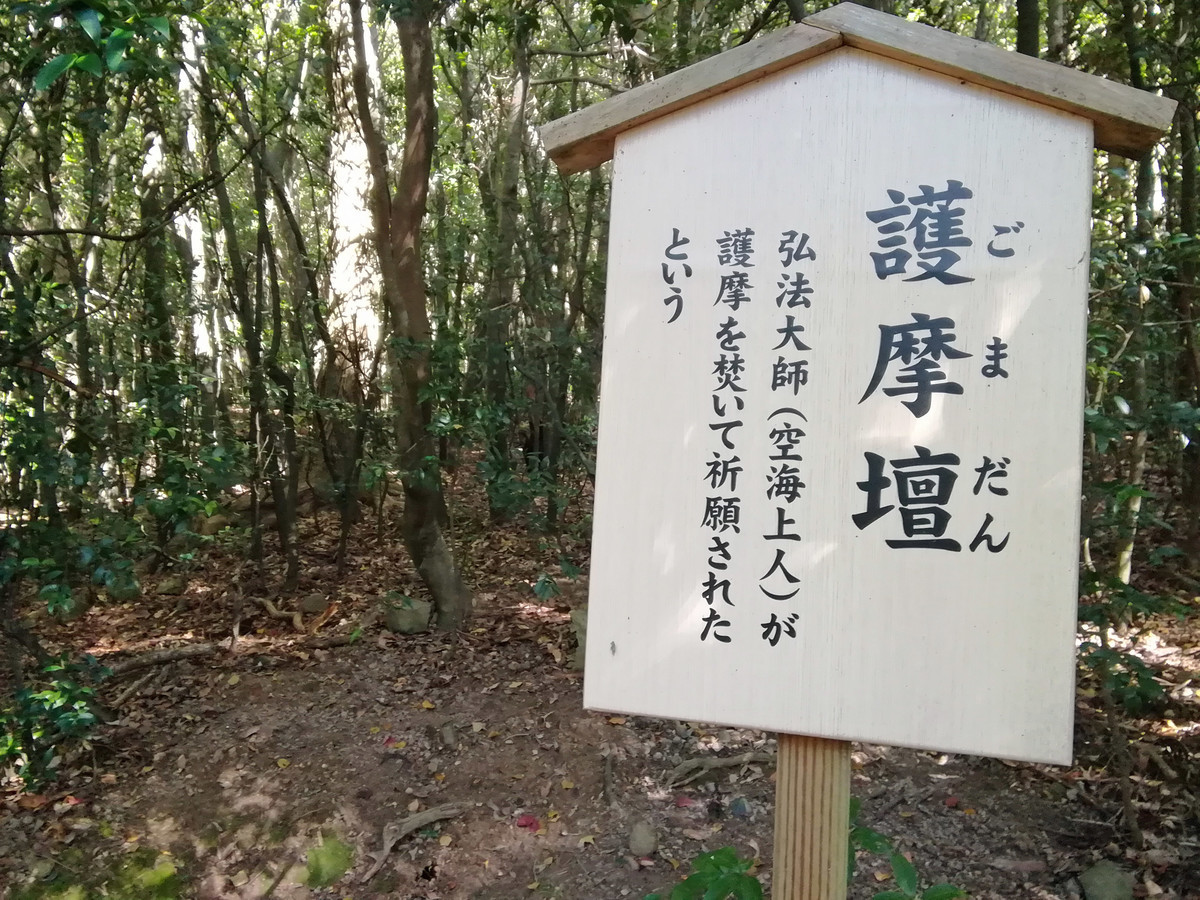 ごまだん
護摩壇
弘法大師（空海上人）が
護摩を焚いて祈願された
という